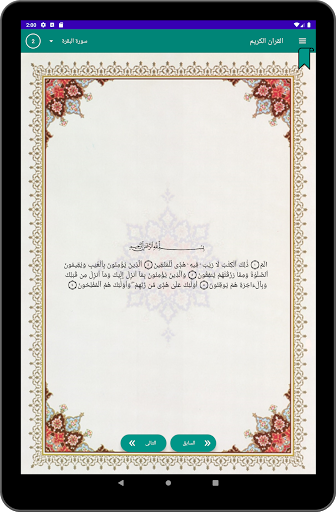 2:00
القرآن الكريم
سورة البقرة
2
بسم الله الرحمن الرحيم
الم ① ذَلِكَ الكِتَبُ لَا رَيبَ فِيهِ هُدًى لِّلمُتَّقِينَ ② الَّذِينَ يُؤمِنُونَ بِالغَيبِ وَيُقِيمُونَ
الصَّلَوةَ وَمِمَّا رَزَقنَهُم يُنفِقُونَ ③ وَالَّذِينَ يُؤمِنُونَ بِمَا أُنزِلَ إِلَيكَ وَمَا أُنزِلَ مِن قَبلِكَ
وَبِالءَاخِرَةِ هُم يُوقِنُونَ ④ أُولَئِكَ عَلَى هُدًى مِّن رَّبِّهِم وَأُولَئِكَ هُمُ المُفلِحُونَ ⑤
السابق
التالى